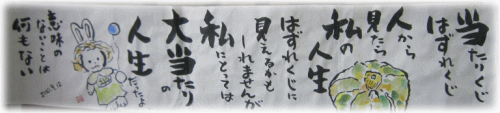 当たりくじ
はずれくじ
人から
見たら
私の
人生
はずれくじに
見えるかも
しれませんが
私にとっては
大当たり
の
人生
だったよ
意味の
ないことは
何もない